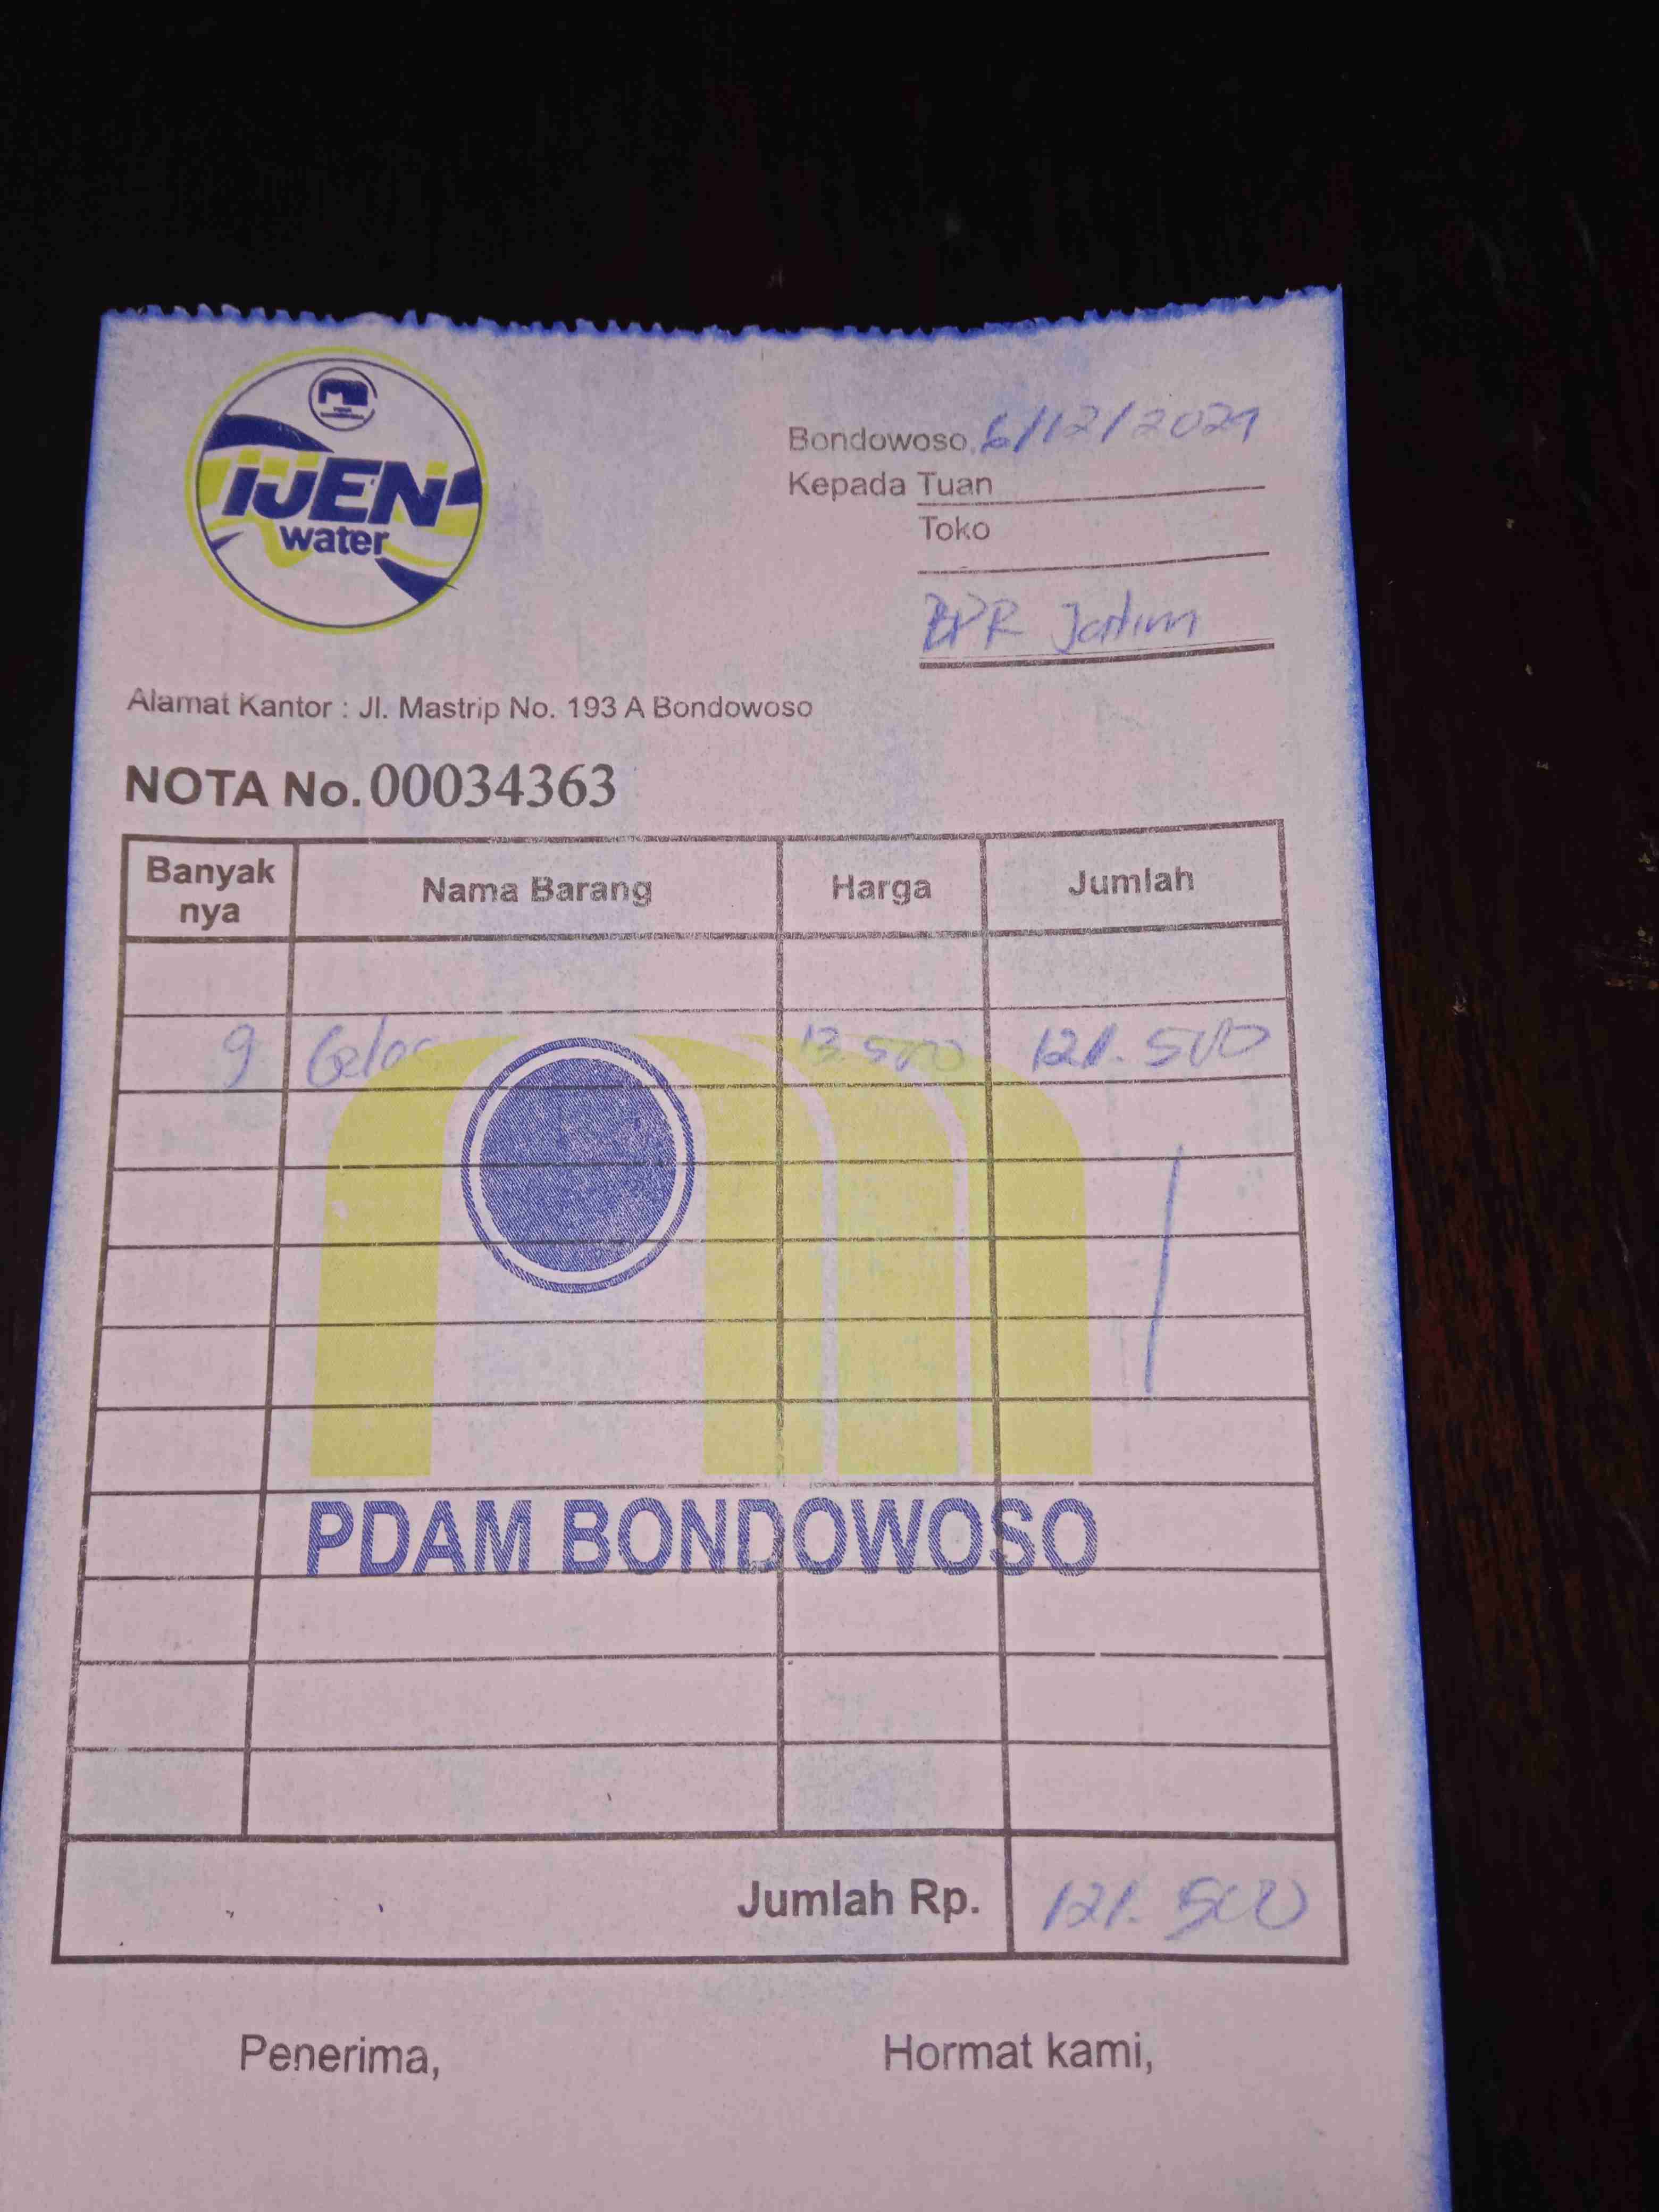 IJEN
water
Bondowoso, 6/12/2021
Kepada Tuan
Toko
BPR Jatim
Alamat Kantor : Jl. Mastrip No. 193 A Bondowoso
NOTA No. 00034363
Banyak nya Nama Barang Harga Jumlah
9 Gelas 13.500 121.500
PDAM BONDOWOSO
Jumlah Rp. 121.500
Penerima, Hormat kami,